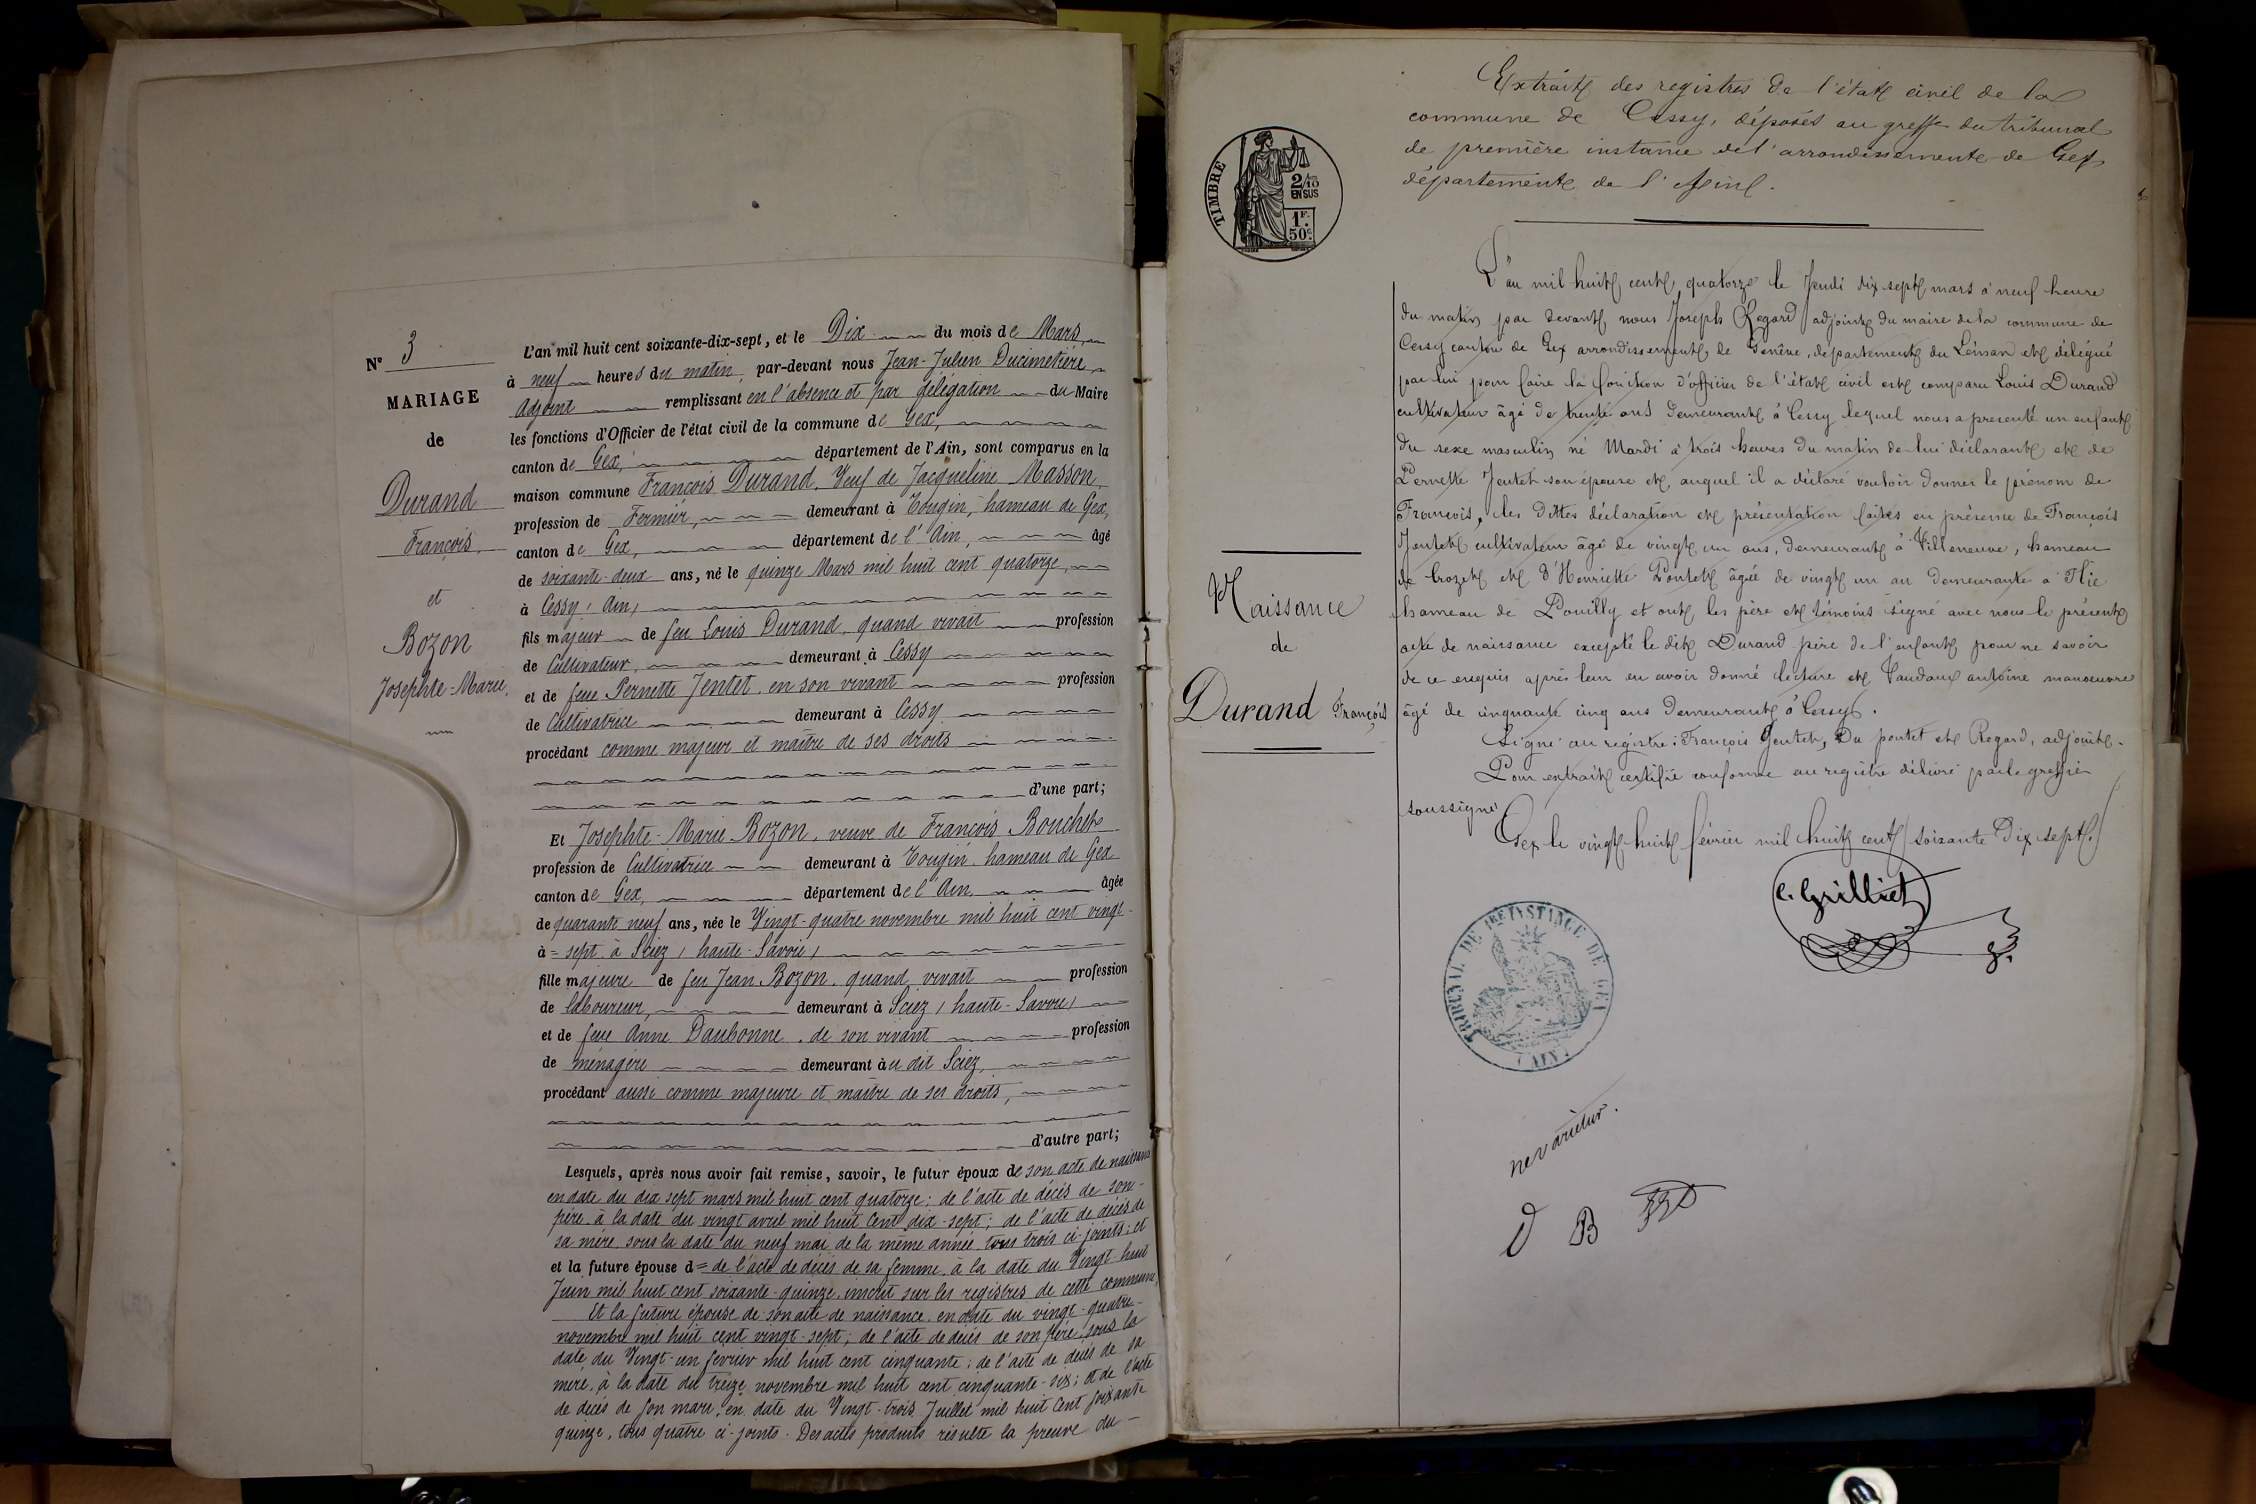 N° 3
MARIAGE
de
Durand
François,
et
Bozon
Josephte-Marie,
L'an mil huit cent soixante-dix-sept, et le Dix du mois de Mars,
à neuf heures du matin, par-devant nous Jean-Julien Ducimetière,
Adjoint remplissant en l'absence et par délégation du Maire
les fonctions d'Officier de l'état civil de la commune de Gex,
canton de Gex, département de l'Ain, sont comparus en la
maison commune François Durand, Veuf de Jacqueline Masson,
profession de Fermier, demeurant à Tougin, hameau de Gex,
canton de Gex, département de l'Ain, âgé
de soixante-deux ans, né le quinze Mars mil huit cent quatorze,
à Cessy (Ain)
fils majeur de feu Louis Durand, quand vivait profession
de Cultivateur, demeurant à Cessy
et de feue Pernette Jentet, en son vivant profession
de Cultivatrice demeurant à Cessy
procédant comme majeur et maître de ses droits
d'une part;
Et Josephte-Marie Bozon, veuve de François Bouchet
profession de Cultivatrice demeurant à Tougin, hameau de Gex
canton de Gex, département de l'Ain, âgée
de quarante neuf ans, née le Vingt-quatre novembre mil huit cent vingt-
à = sept, à Sciez (haute-Savoie)
fille majeure de feu Jean Bozon, quand vivait profession
de laboureur, demeurant à Sciez (haute-Savoie)
et de feue Anne Daubonne, de son vivant profession
de ménagère demeurant àu dit Sciez,
procédant aussi comme majeure et maître de ses droits,
d'autre part;
Lesquels, après nous avoir fait remise, savoir, le futur époux de son acte de naissance
en date du dix sept mars mil huit cent quatorze; de l'acte de décès de son-
père, à la date du vingt avril mil huit cent dix-sept; de l'acte de décès de
sa mère, sous la date du neuf mai de la même année, tous trois ci-joints; et
et la future épouse d = de l'acte de décès de sa femme, à la date du Vingt-huit
Juin mil huit cent soixante-quinze, inscrit sur les registres de cette commune,
Et la future épouse de son acte de naissance, en date du vingt-quatre-
novembre mil huit cent vingt-sept; de l'acte de décès de son père, sous la
date du Vingt-un février mil huit cent cinquante; de l'acte de décès de sa
mère, à la date du treize novembre mil huit cent cinquante-six; et de l'acte
de décès de son mari, en date du Vingt-trois Juillet mil huit cent soixante
quinze, tous quatre ci-joints. Des actes produits résulte la preuve du-
TIMBRE
2/10
EN SUS
1F.
50c.
Extrait des registres de l'état civil de la
commune de Cessy, déposés au greffe du tribunal
de première instance de l'arrondissement de Gex
département de l'Ain.
Naissance
de
Durand François
L'an mil huit cent quatorze le Jeudi dix sept mars à neuf heure
du matin par devant nous Joseph Regard adjoint du maire de la commune de
Cessy canton de Gex arrondissement de Genêve, département du Léman et délégué
par lui pour faire la fonction d'officier de l'état civil est comparu Louis Durand
cultivateur âgé de trente ans demeurant à Cessy lequel nous a presenté un enfant
du sexe masculin né Mardi à trois heures du matin de lui déclarant et de
Pernette Jentet son épouse et auquel il a déclaré vouloir donner le prénom de
François, les dittes déclaration et présentation faites en présence de François
Jentet cultivateur âgé de vingt un ans, demeurant à Villeneuve, hameau
de Crozet et d'Henriette Pontet âgée de vingt un an demeurante à Flie
hameau de Pouilly et ont les père et témoins signé avec nous le présent
acte de naissance excepté le dit Durand père de l'enfant pour ne savoir
de ce enquis après leur en avoir donné lecture et Vaudaux antoine manoeuvre
âgé de cinquante cinq ans demeurant à Cessy.
Signé au registre: François Gentet, Du pontet et Regard, adjoint.
Pour extrait certifié conforme au registre délivré par le greffier
soussigné
Gex le vingt huit février mil huit cent soixante dix sept.
C. Grilliet
TRIBUNAL DE 1ERE INSTANCE DE GEX
(AIN)
ne varietur.
D B